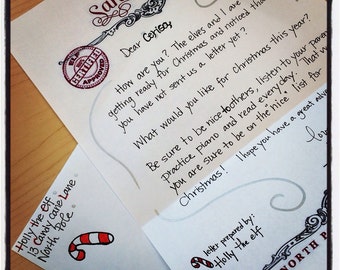 San
APPROVED
Dear Cerisa,
How are you? The elves and I are
getting ready for Christmas and noticed tha
you have not sent us a letter yet??
What would you like for Christmas this year?
Be sure to be nice to others, listen to your paren
practice piano and read everyday. That w
you are sure to be on the "nice" list for
Christmas! I hope you have a great adve
lov
Holly the Elf
13 Candy Cane Lane
North Pole
letter prepared by:
Holly the elf
NORTH P